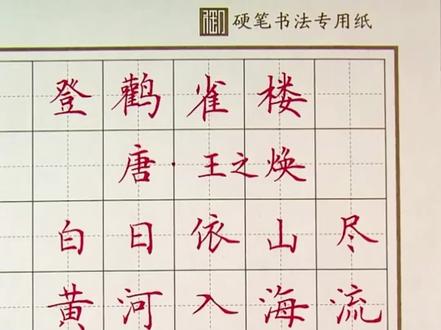 硬笔书法专用纸
登鹳雀楼
唐·王之焕
白日依山尽
黄河入海流